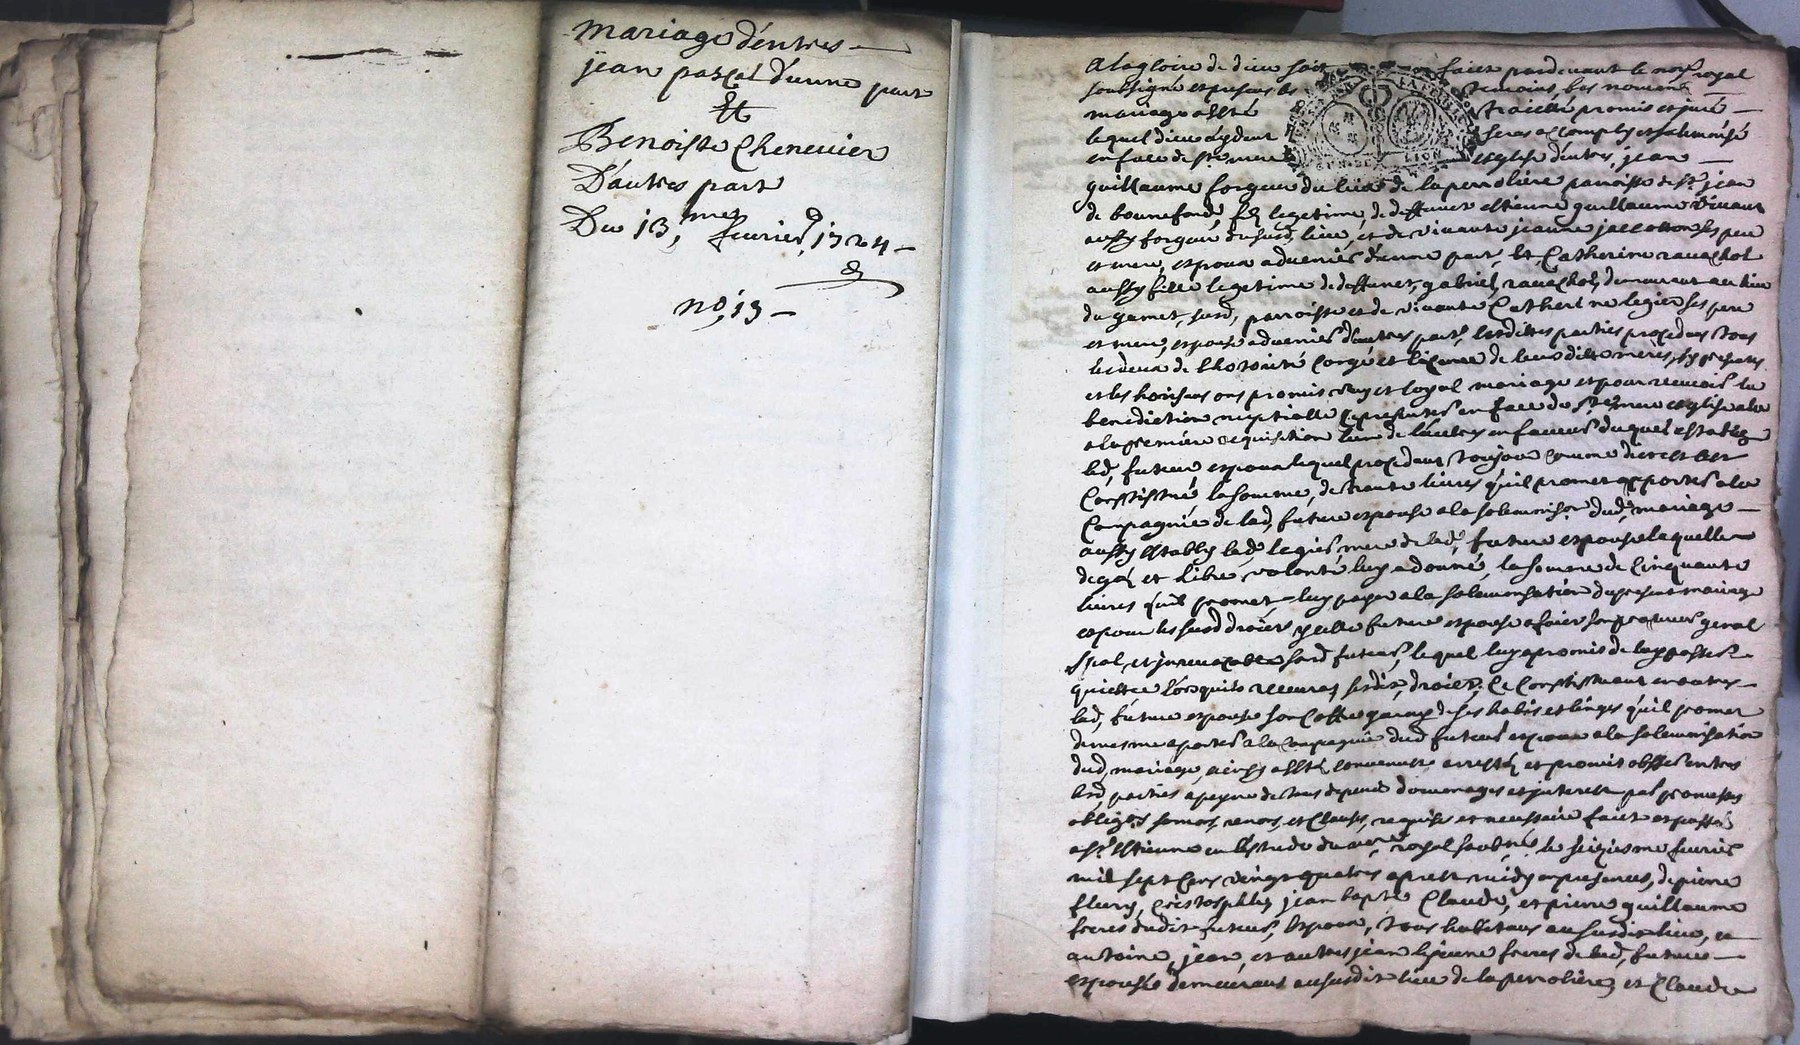 mariage d'entres
jean pascal d'unne part
Et
Benoiste Chenevier
D'autres part
Du 13me fevrier 1724
no, 13
A la gloire de dieu soit faict pardevant le nore royal
soubsigné et presens les temoins bas nommé
mariage a esté traicté promis et juré
lequel dieu aydent seras accomply et solemnisé
en face de ste mere esglise d'entres jean
guillaume forgeur du lieu de la perrolière parroisse de st jean
de bonnefond, fils legetime de deffunct estienne guillaume vivant
aussy forgeur dususd lieu, et de vivante jeanne ses pere
et mere, espoux advenir d'unne part, Et Catherine ravachol
aussy fille legetime de deffunct gabriel ravachol, demeurant au lieu
du gamet, susd, parroisse et de vivante Catherine legier ses pere
et mere, espouse advenir d'autres part, lesdittes parties procedans tous
les deux de l'hotorité congé et licence de leurs dittes meres, sy presentes
et les horisens ont promis vray et loyal mariage et pour recevoir la
benediction nuptialle se presenter en face de ste mere esglise
a la première requisition l'un de l'autres en faveur duquel estably
led, futeur espoux lequel procedant toujour comme dict est
Constistué, la somme, de trante livres qu'il promet apporter a la
Compagnie de lad, future espouse a la solemnison dud, mariage
aussy estably lad, legier, mere de lad, future espouse laquelle
de gré et libre volonté luy a donné, la somme de Cinquante
livres qu'il promet luy payer a la solemnisation du present mariage
et pour les susd droicts ycelle future espouse a faict son procureur general
spal, et jrrevocable sond futeur, lequel luy a promis de luy passer
quictce lorsquils recevras sesdit, droict, Ce Constistuant en outres
lad, future espouse son Coffre garny de ses habis et linges qu'il promet
de mesme aporter a la Compagnie dud futeur espoux a la solemnisation
dud, mariage, ainsy a esté convenu arresté et promit observer entres
lesd, parties a peyne de tous depens domenages et jnterest par promesses
obligons somons, renons, et Clauses, requises et necessaire faict et passé
a st Estienne en l'estude du nore royal soubné, le seizieme fevrier
mil sept Cens vingt quatres apres midy en presences, de pierre
fleury, Cristosphle, jean bapte Claude, et pierre guillaume
freres dudit futeur, Espoux, tous habitans ausudit lieu, et
antoine, jean, et autres jean lejeune freres de lad, future
espouse demeurans ausudit lieu de la perrolière, et Claude